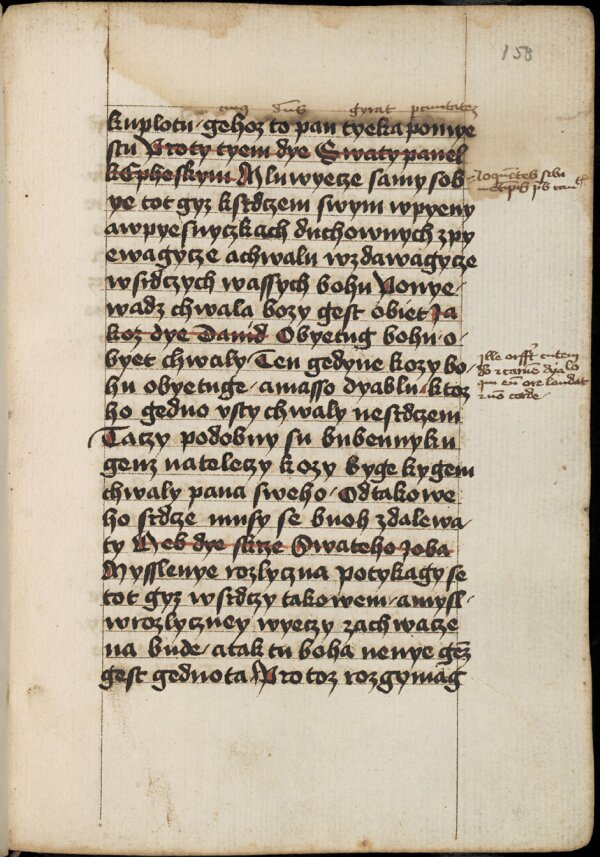 158
kuplotu gehoz to pan tyeka pomye
stu Proty tyem dye Swaty pawel
k Epheskym Mluwyecze samy sob
ye tot gyz k srdczem swym w pyeny
a w pyesnyczkach duchownych zpy
ewagycze a chwalu wzdawagycze
w srdczych wassych bohu Ponye
wadz chwala bozy gest obiet Ja
koz dye Dauid Obyetug bohu o
byet chwaly Ten gedyne kozy bo
hu obyetuge a masso dyablu ktoz
ho gedno vsty chwaly ne srdczem
Taczy podobny su bubennyku
genz na teleczy kozy byge ky gem
chwaly pana sweho Od takowe
ho srdze musy se buoh zdalewa
ty Neb dye skrze Swateho Joba
Mysslenye rozlyczna potykagy se
tot gyz w srdczy takowem a mysl
w rozlyczney wyeczy zachwacze
na bude a tak tu boha nenye gez
gest gednota Protoz rozgymag